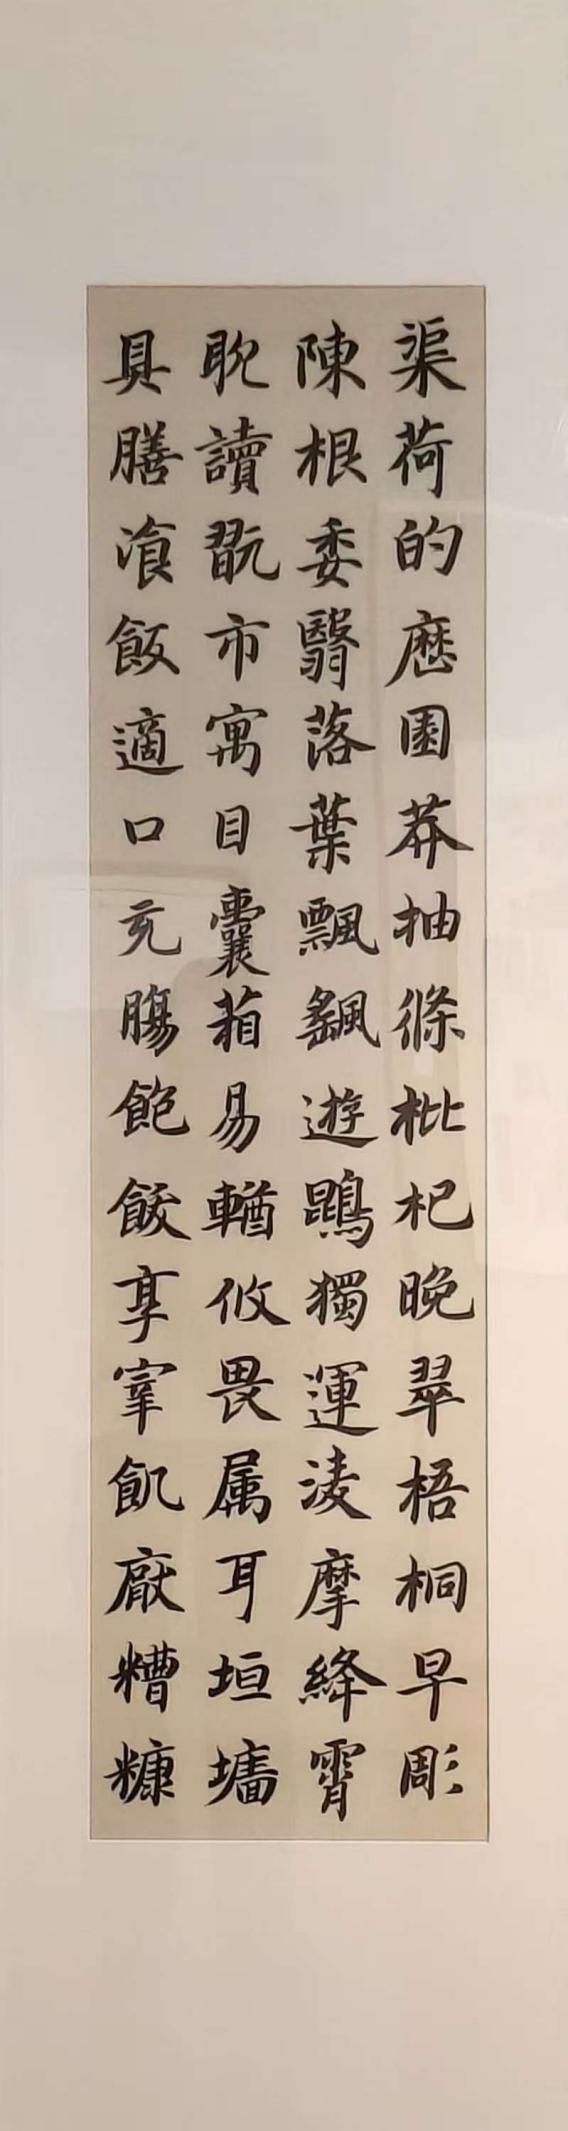 渠荷的歷園莽抽條枇杷晚翠梧桐早彫
陳根委翳落葉飄颻遊鵾獨運淩摩絳霄
耽讀翫市寓目囊葙易輶攸畏属耳垣墻
具膳飡飯適口充腸飽飫享宰飢厭糟糠